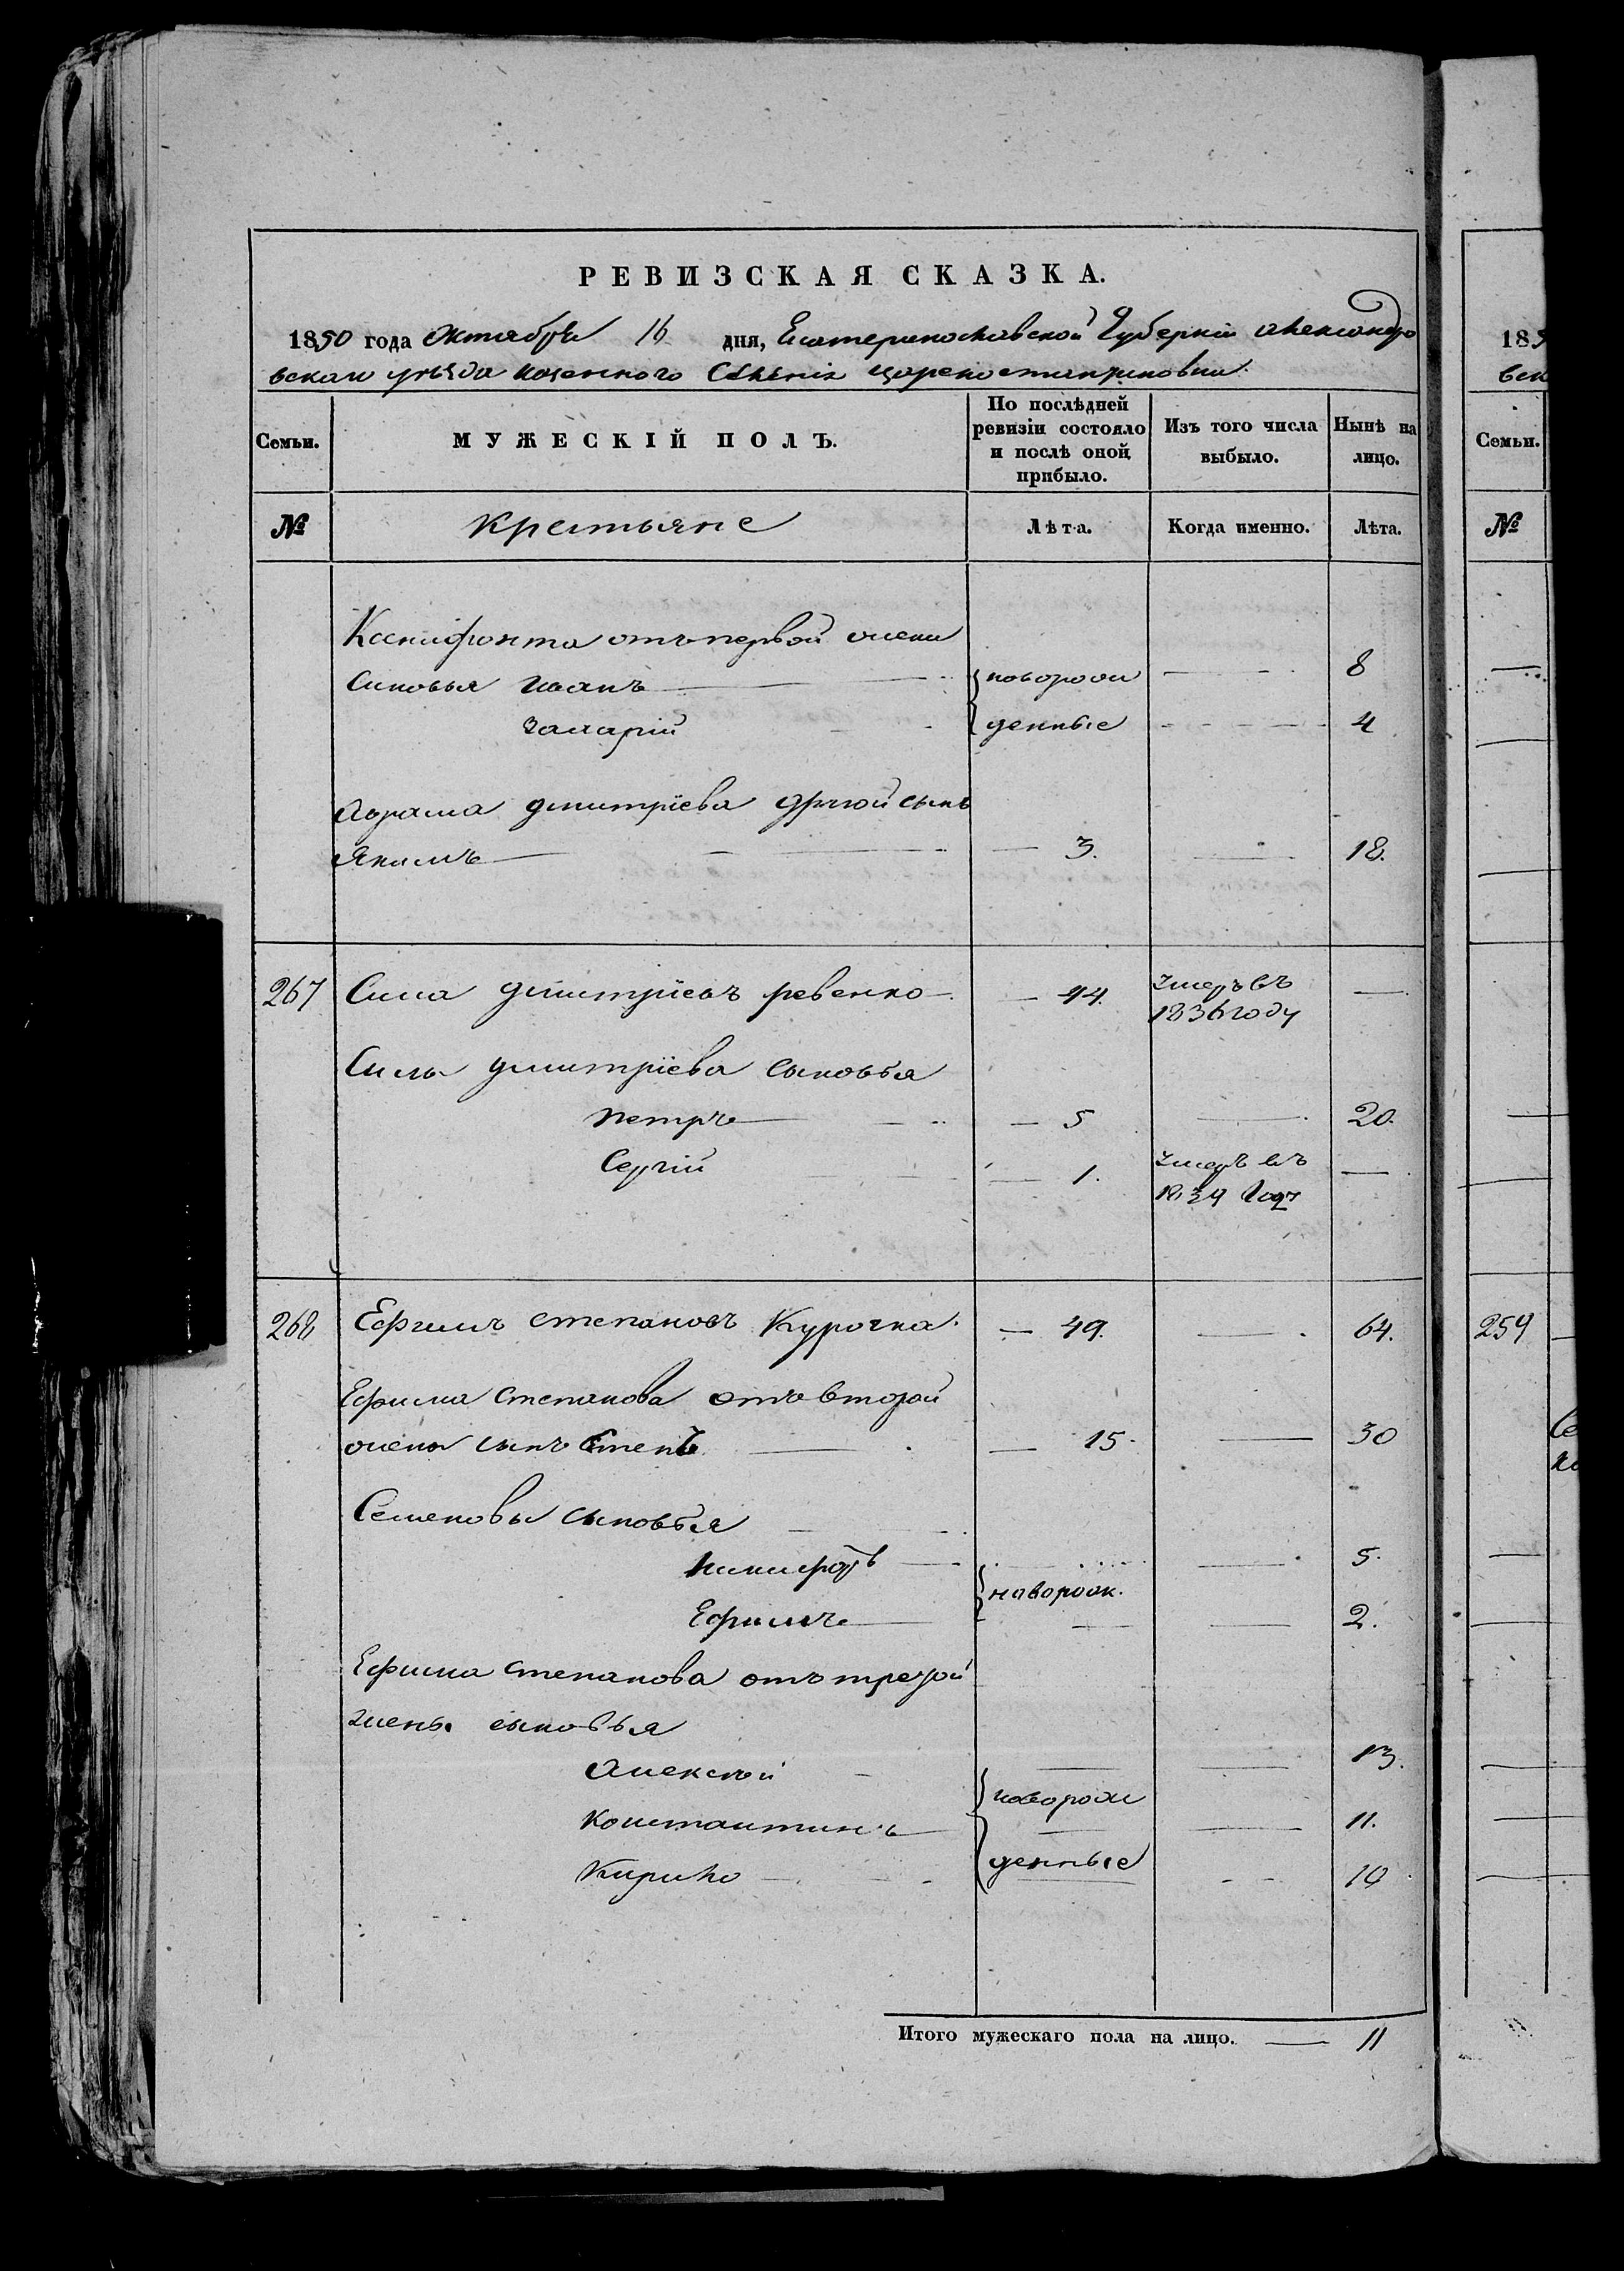 РЕВИЗСКАЯ СКАЗКА.
1850 года Октября 16 дня, Екатеринославской Губерніи Александро
вскаго уѣзда казенного Селенія Цареконстантиновки
Семьи. МУЖЕСКІЙ ПОЛЪ. По послѣдней ревизіи состояло и послѣ оной прибыло. Изъ того числа выбыло. Нынѣ на лицо.
№ Крестьяне Лѣта. Когда именно. Лѣта.
Ксенифонта отъ первой жены
Сыновья Иванъ новорож 8
Захарій денные 4
Аврама Дмитріева другой сынъ
Якимъ 3. 18.
267 Сила Дмитріевъ Ревенко 44. Умеръ въ
1836 году
Силы Дмитріева Сыновья
Петръ 5 20.
Сергій 1. Умеръ въ
1839 году
268 Ефимъ Степановъ Курочка. 49. 64.
Ефима Степанова отъ второй
жены сынъ 15. 30
Семеновы сыновья
Никифоръ 5.
новорож.
Ефимъ 2.
Ефима Степанова отъ третей
жены сыновья
Алексѣй 13.
новорож
Константинъ 11.
денные
Кирило 10
Итого мужескаго пола на лицо. 11
185
вск
Семьи.
№
259
Се